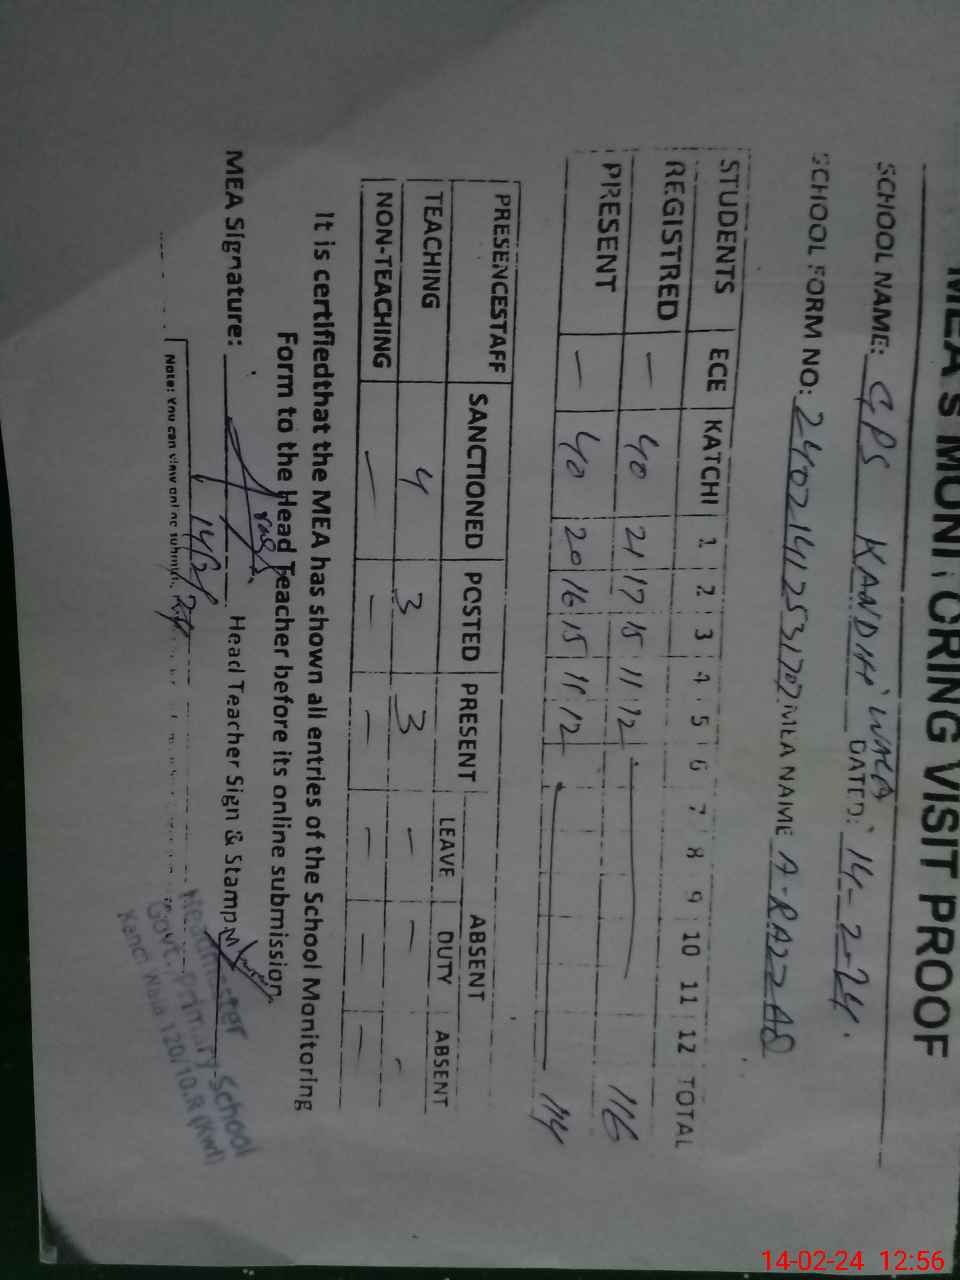 MEA's MONITORING VISIT PROOF
SCHOOL NAME: GPS KANDIH WALA DATED: 14-2-24.
SCHOOL FORM NO: MEA NAME A-RAZZAQ
STUDENTS ECE KATCHI 1 2 3 4 5 6 7 8 9 10 11 12 TOTAL
REGISTRED — 40 21 17 15 11 12 116
PRESENT — 40 20 16 15 11 12 114
PRESENCESTAFF SANCTIONED POSTED PRESENT ABSENT
LEAVE DUTY ABSENT
TEACHING 4 3 3 — — -
NON-TEACHING — — — — — —
It is certifiedthat the MEA has shown all entries of the School Monitoring
Form to the Head Teacher before its online submission
MEA Signature: Head Teacher Sign & Stamp
Note: You can view online
Headmaster
Govt. Primary School
120/10.R (Kwl)
14-02-24 12:56